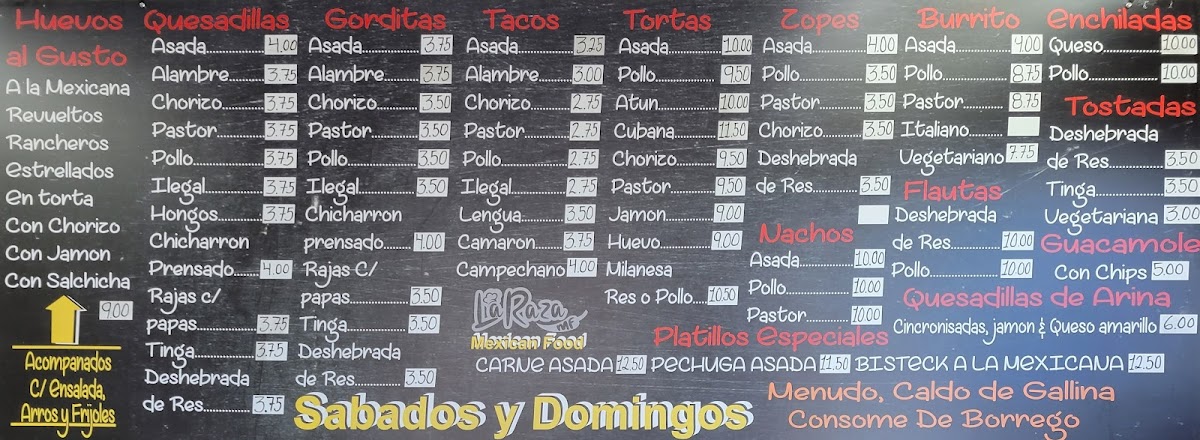 Huevos
al Gusto
A la Mexicana
Revueltos
Rancheros
estrellados
en torta
Con Chorizo
Con Jamon
Con Salchicha
9.00
Acompanados
C/ Ensalada,
Arros y Frijoles
Quesadillas
Asada 4.00
Alambre 3.75
Chorizo 3.75
Pastor 3.75
Pollo 3.75
Ilegal 3.75
Hongos 3.75
Chicharron
Prensado 4.00
Rajas c/
papas 3.75
Tinga 3.75
Deshebrada
de Res 3.75
Gorditas
Asada 3.75
Alambre 3.75
Chorizo 3.50
Pastor 3.50
Pollo 3.50
Ilegal 3.50
Chicharron
prensado 4.00
Rajas C/
papas 3.50
Tinga 3.50
Deshebrada
de Res 3.50
Tacos
Asada 3.25
Alambre 3.00
Chorizo 2.75
Pastor 2.75
Pollo 2.75
Ilegal 2.75
Lengua 3.50
Camaron 3.75
Campechano 4.00
La Raza MF
Mexican Food
Tortas
Asada 10.00
Pollo 9.50
Atun 10.00
Cubana 11.50
Chorizo 9.50
Pastor 9.50
Jamon 9.00
Huevo 9.00
Milanesa
Res o Pollo 10.50
Zopes
Asada 4.00
Pollo 3.50
Pastor 3.50
Chorizo 3.50
Deshebrada
de Res 3.50
Nachos
Asada 10.00
Pollo 10.00
Pastor 10.00
Burrito
Asada 9.00
Pollo 8.75
Pastor 8.75
Italiano
Vegetariano 7.75
Flautas
Deshebrada
de Res 10.00
Pollo 10.00
Enchiladas
Queso 10.00
Pollo 10.00
Tostadas
Deshebrada
de Res 3.50
Tinga 3.50
Vegetariana 3.00
Guacamole
Con Chips 5.00
Quesadillas de Arina
Cincronisadas, jamon & Queso amarillo 6.00
Platillos Especiales
CARNE ASADA 12.50 PECHUGA ASADA 11.50 BISTECK A LA MEXICANA 12.50
Sabados y Domingos
Menudo, Caldo de Gallina
Consome De Borrego